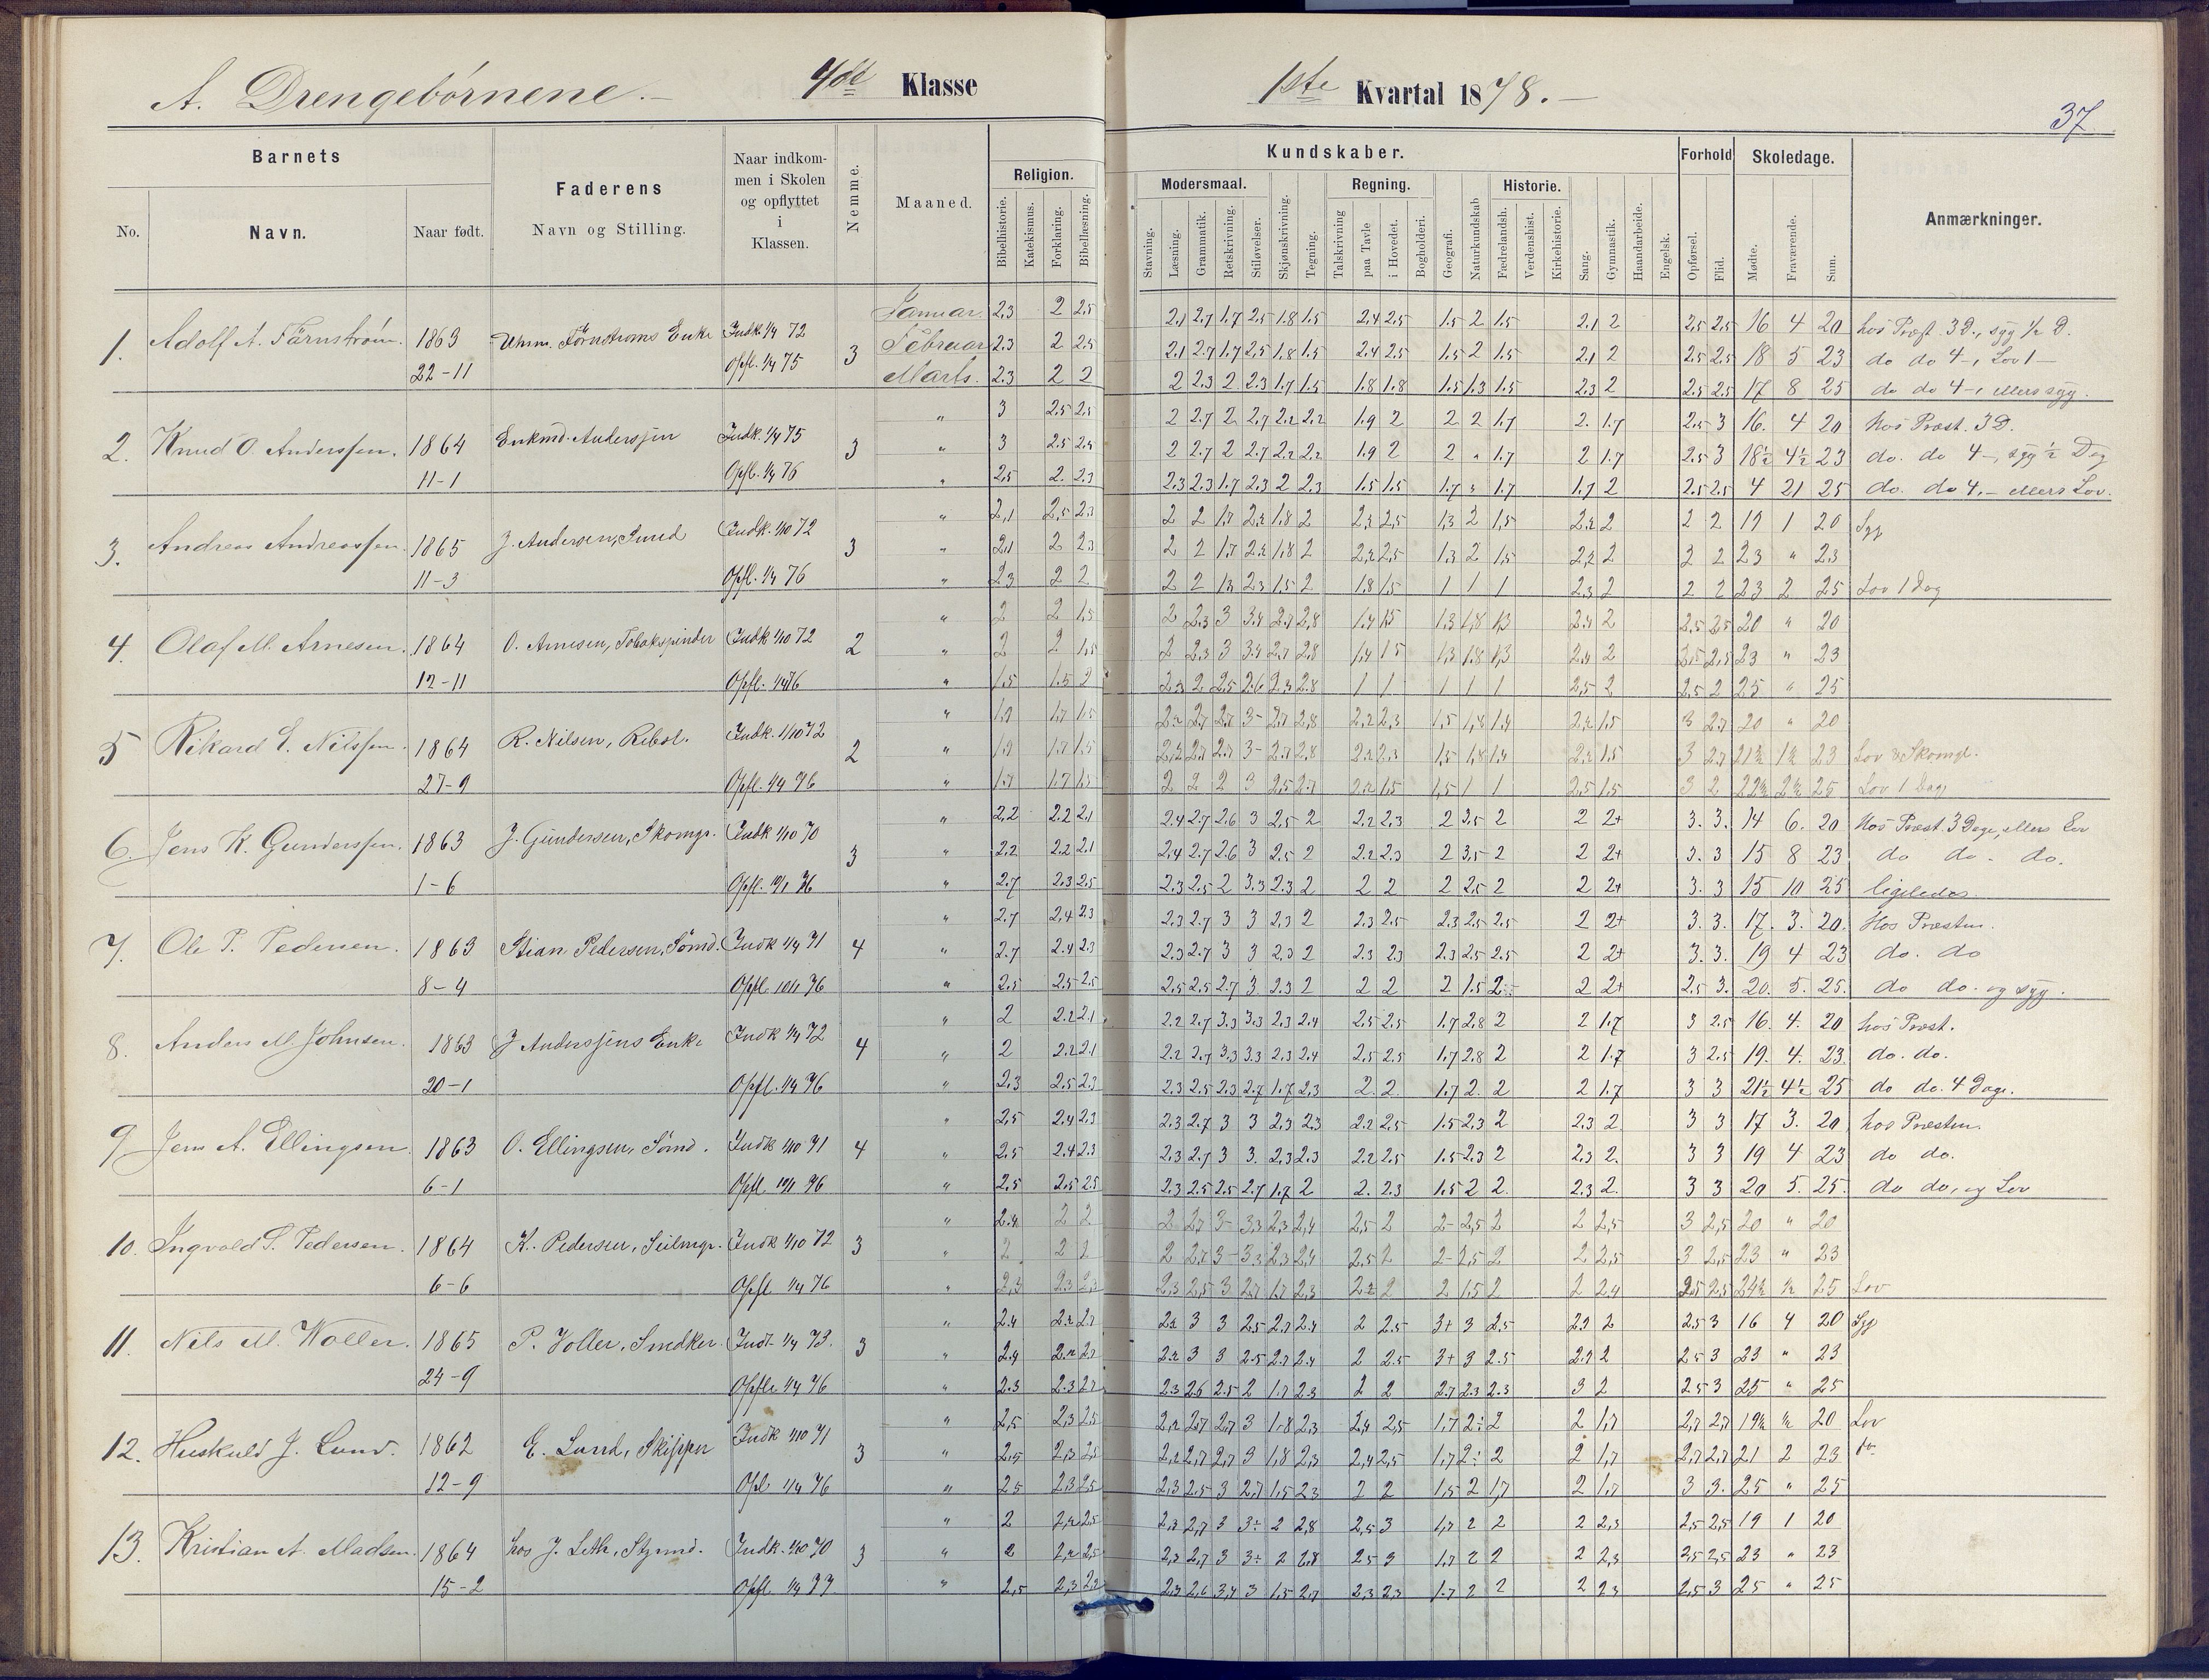 A. Drengebørnene.— 4de Klasse
1ste Kvartal 1878.—
37
Barnets
Faderens
Naar indkom-
men i Skolen
og opflyttet
i
Klassen.
Nemme.
Maaned.
Religion.
Kundskaber.
Forhold
Skoledage.
Anmærkninger.
No.
Navn.
Naar født.
Navn og Stilling.
Modersmaal.
Regning.
Historie.
Bibelhistorie.
Katekismus.
Forklaring.
Bibellæsning.
Stavning.
Læsning.
Grammatik.
Retskrivning.
Stiløvelser.
Skjønskrivning.
Tegning.
Talskrivning
paa Tavle
i Hovedet.
Bogholderi.
Geografi.
Naturkundskab
Fædrelandsh.
Verdenshist.
Kirkehistorie.
Sang.
Gymnastik.
Haandarbeide.
Engelsk.
Opførsel.
Flid.
Mødte.
Fraværende.
Sum.
Januar 2.3 2 2.5 2.1 2.7 1.7 2.5 1.8 1.5 2.4 2.5 1.5 2 1.5 2.1 2 2.5 2.5 16 4 20 hos Præst. 3 D., syg ½ D.
1. Adolf A. Färnström. 1863 Enke Indk. 1/4 72 3 Februar 2.3 2 2.5 2.1 2.7 1.7 2.5 1.8 1.5 2.4 2.5 1.5 2 1.5 2.1 2 2.5 2.5 18 5 23 do do 4 -, Lov 1 —
22-11 Opfl. 1/4 75 Marts. 2.3 2 2 2 2.3 2 2.3 1.7 1.5 1.8 1.8 1.5 1.3 1.5 2.3 2 2.5 2.5 17 8 25 do do 4 -, ellers syg.
" 3 2.5 2.5 2 2.7 2 2.7 2.2 2.2 1.9 2 2 2 1.7 2. 1.7 2.5 3 16. 4 20 Hos Præst. 3 D.
2. Knud O. Anderssen. 1864 Enkmd. Anderssen Indk. 1/4 75 3 " 3 2.5 2.5 2 2.7 2 2.7 2.2 2.2 1.9 2 2 " 1.7 2 1.7 2.5 3 18½ 4½ 23 do. do 4 -, syg ½ Dag
11-1 Opfl. 1/4 76 " 2.5 2. 2.3 2.3 2.3 1.7 2.3 2 2.3 1.5 1.5 1.7 " 1.7 1.7 2 2.5 2.5 4 21 25 do. do 4. - ellers Lov.
" 2,1 2,5 2.3 2 2 1.7 2.2 1.8 2 2.2 2,5 1,3 2 1,5 2.2 2 2 2 19 1 20 Syg
3. Andreas Andreassen. 1865 J. Andersen, Smed Indk. 1/10 72 3 " 2,1 2 2.3 2 2 1.7 2.2 1,8 2 2.2 2.5 1.3 2 1,5 2,2 2 2 2 23 " 23
11-3 Opfl. 1/4 76 " 2.3 2 2 2 2 2.3 1.5 2 1.8 1.5 1 1 1 2.3 2 2 2 23 2 25 Lov 1 Dag
" 2 2 1.5 2 2.3 3 3.4 2.7 2,8 1.4 1.5 1.3 1,8 1,3 2.4 2 2.5 2.5 20 " 20
4. Olaf M. Arnesen. 1864 O. Arnesen, Tobakspinder Indk 1/10 72 2 " 2 2 1.5 2 2.3 3 3.4 2.7 2.8 1,4 1 5 1,3 1.8 1,3 2.4 2 2,5 2,5 23 " 23
12-11 Opfl. 1/4 76 " 1.5 1.5 2 2.3 2 2.5 2.6 2.3 2.8 1 1 1 1 1 2,5 2 2.5 2 25 " 25
" 1.7 1.7 1.5 2.2 2,7 2,7 3- 2,7 2,8 2.2 2,3 1,5 1,8 1.4 2.2 1.5 3 2.7 20 " 20
5 Rikard E. Nilssen. 1864 R. Nilsen, Rebsl. Indk. 1/10 72 2 " 1.7 1.7 1.5 2,2 2,7 2.7 3- 2,7 2,8 2.2 2.3 1,5 1,8 1.4 2.2 1.5 3 2.7 21½ 1½ 23 Lov
27-9 Opfl. 1/4 76 " 1.7 1.7 1.5 2 2 2 3 2.5 2.7 2.2 1.5 1,5 1 1 2,5 1.5 3 2 22½ 2½ 25 Lov 1 Dag
" 2,2 2.2 2.1 2.4 2.7 2.6 3 2.5 2 2.2 2.3 2 3.5 2 2 2+ 3. 3. 14 6. 20 Hos Præst. 3 Dage, ellers Lov
6. Jens K. Gunderssen. 1863 J. Gundersen, Skomgr. Indk 1/10 70 3 " 2.2 2.2 2.1 2.4 2.7 2.6 3 2.5 2 2.2 2.3 2 3,5 2 2 2+ 3. 3 15 8 23 do do. do.
1-6 Opfl. 10/1 76 " 2.7 2.3 2.5 2.3 2.5 2 3.3 2.3 2 2 2 2 2.5 2 2 2+ 3. 3 15 10 25 ligeledes.
" 2.7 2.4 2.3 2.3 2.7 3 3 2.3 2 2.3 2.5 2.3 2.5 2.5 2 2+ 3. 3. 17. 3. 20. Hos Præsten.
7. Ole P. Pedersen. 1863 Stian Pedersen, Sömd. Indk 1/4 71 4 " 2.7 2.4 2.3 2.3 2.7 3 3 2.3 2 2.3 2.3 2.3 2.5 2.5 2 2+ 3. 3. 19 4 23 do. do
8-4 Opfl 10/1 76 " 2.5 2.5 2.5 2.5 2.5 2.7 3 2.3 2 2 2 2 1.5 2 2 2+ 2.5 3. 20. 5. 25. do do. og syg.
" 2 2.2 2.1 2.2 2.7 3.3 3.3 2.3 2.4 2.5 2.5 1.7 2.8 2 2 1.7 3 2.5 16. 4. 20 hos Præst.
8. Anders M. Johnsen. 1863 J Anderssens Enke Indk 1/4 72 4 " 2 2.2 2.1 2.2 2.7 3.3 3.3 2.3 2.4 2.5 2.5 1.7 2.8 2 2 1.7 3 2.5 19. 4. 23. do. do.
20-1 Opfl. 1/4 76 " 2.3 2.5 2.3 2.3 2.5 2.3 2.7 1.7 2.3 2. 2. 1.7 2. 2 2 1.7 3 3 21½ 4½ 25 do do. 4 Dage.
" 2.5 2.4 2.3 2.3 2.7 3 3 2.3 2.3 2.2 2.5 1.5 2.3 2 2.3 2 3 3 17 3. 20 hos Præsten.
9 Jens A. Ellingsen. 1863 O. Ellingsen, Sömd. Indk 1/10 71 4 " 2.5 2.4 2.3 2.3 2.7 3 3. 2.3 2.3 2.2 2.5 1.5 2.3 2 2.3 2. 3 3 19 4 23 do do.
6-1 Opfl 10/1 76 " 2.5 2.5 2.5 2.3 2.5 2.5 2.7 1.7 2 2. 2.3 1.5 2 2. 2.3 2. 3 3 20 5. 25. do do, og Lov
" 2.4 2 2 2 2,7 3- 3,3 2,3 2,4 2,5 2 2- 2,5 2 2 2,5 3 2,5 20 " 20
10. Ingvald S. Pedersen. 1864 K. Pedersen, Seilmgr. Indk 1/10 72 3 " 2 2 2 2 2,7 3- 3,3 2,3 2,4 2,5 2 2- 2,5 2 2 2,5 3 2,5 23 " 23
6-6 Opfl 1/4 76 " 2,3 2.3 2,3 2,3 2,5 3 2,7 1.7 2,3 2.2 2 2 1.5 2 2 2,4 2,5 2.5 24½ ½ 25 Lov
" 2.4 2.2 2.7 2.2 3 3 2.5 2.7 2.4 2 2.5 3+ 3 2.5 2.7 2 2.5 3 16 4 20 Syg
11. Nils M. Woller. 1865 P. Voller, Snedker. Indk 1/4 73. 3 " 2.4 2.2 2.7 2.2 3 3 2.5 2.7 2.4 2 2.5 3+ 3 2.5 2.7 2 2.5 3 23 " 23
24-9 Opfl. 1/4 76 " 2.3 2.3 2.7 2.3 2.6 2.5 2 1.7 2.3 2 2 2.7 2.3 2.3 3 2 2.5 3 25 " 25
" 2,5 2,3 2.5 2,2 2,7 2,7 3 1,8 2,3 2,4 2,5 1,7 2÷ 2 2 1,7 2,7 2,7 19½ ½ 20 Lov
12. Huskuld J. Lund. 1862 E. Lund, Skipper Indk 1/10 71 3 " 2,5 2,3 2,5 2,2 2,7 2,7 3 1,8 2,3 2,4 2,5 1,7 2÷ 2 2 1,7 2,7 2,7 21 2 23 do
12-9 Opfl 1/4 76 " 2 5 2,3 2.5 2,3 2.5 3 2.7 1,5 2.3 2 2 1,5 2 1,7 2 1,7 3 3. 25 " 25
" 2 2,2 2,5 2,3 2,7 3 3÷ 2 2,8 2,5 3 1,7 2 2 2 2,3 2,5 2,5 19 1 20
13. Kristian A. Madsen. 1864 hos J. Leth, Stymd. Indk. 1/10 70 3 " 2 2,2 2,5 2,3 2,7 3 3÷ 2 2,8 2.5 3 1.7 2 2 2 2,3 2,5 2,5 23 " 23
15-2 Opfl 1/4 77 " 2,5 2,3 2,2 2,3 2,6 3,3 3 1,5 2,7 2,3 2,3 1.7 2 2 2 2,3 2,5 3 25 " 25